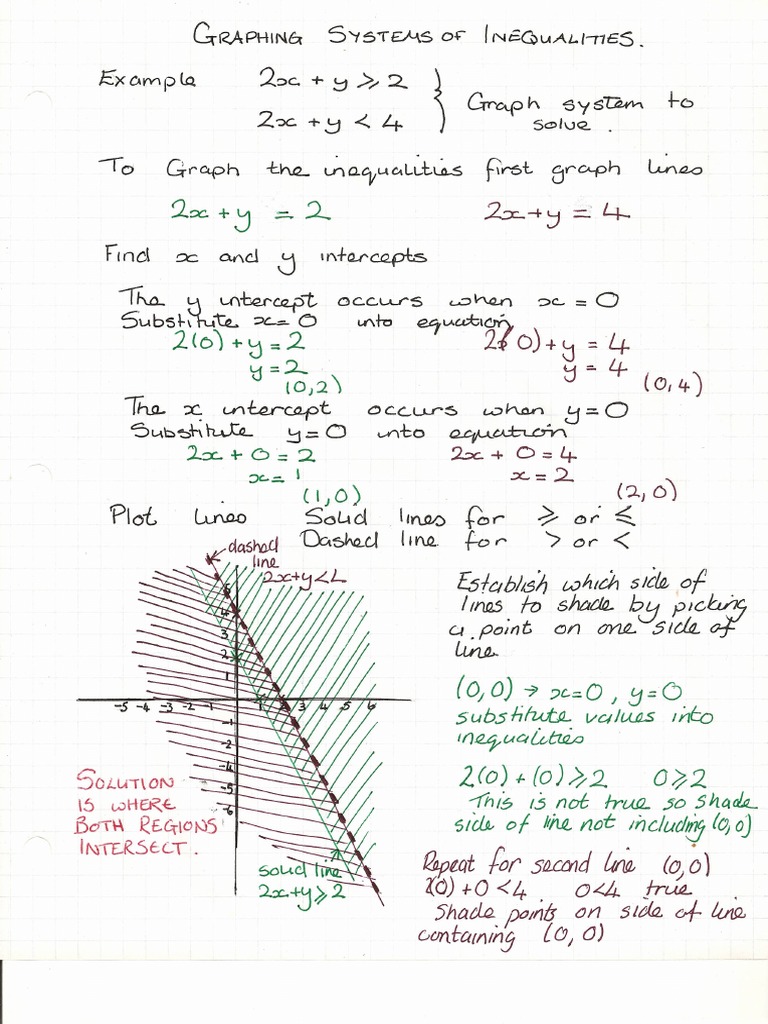 GRAPHING SYSTEMS OF INEQUALITIES.
Example 2x + y ⩾ 2
2x + y < 4
Graph system to
solve.
To Graph the inequalities first graph lines
2x + y = 2 2x + y = 4
Find x and y intercepts
The y intercept occurs when x = 0
Substitute x = 0 into equation
2(0) + y = 2 2(0) + y = 4
y = 2 y = 4
(0,2) (0,4)
The x intercept occurs when y = 0
Substitute y = 0 into equation
2x + 0 = 2 2x + 0 = 4
x = 1 x = 2
(1,0) (2,0)
Plot lines Solid lines for ⩾ or ⩽
Dashed line for > or <
dashed
line
2x+y<4
5
4
3
2
1
-5 -4 -3 -2 -1 1 2 3 4 5 6
-1
-2
-4
-5
-6
SOLUTION
IS WHERE
BOTH REGIONS
INTERSECT.
solid line
2x+y⩾2
Establish which side of
lines to shade by picking
a point on one side of
line
(0,0) → x=0, y=0
substitute values into
inequalities
2(0) + (0) ⩾ 2 0 ⩾ 2
This is not true so shade
side of line not including (0,0)
Repeat for second line (0,0)
2(0) + 0 < 4 0<4 true
Shade points on side of line
containing (0,0)